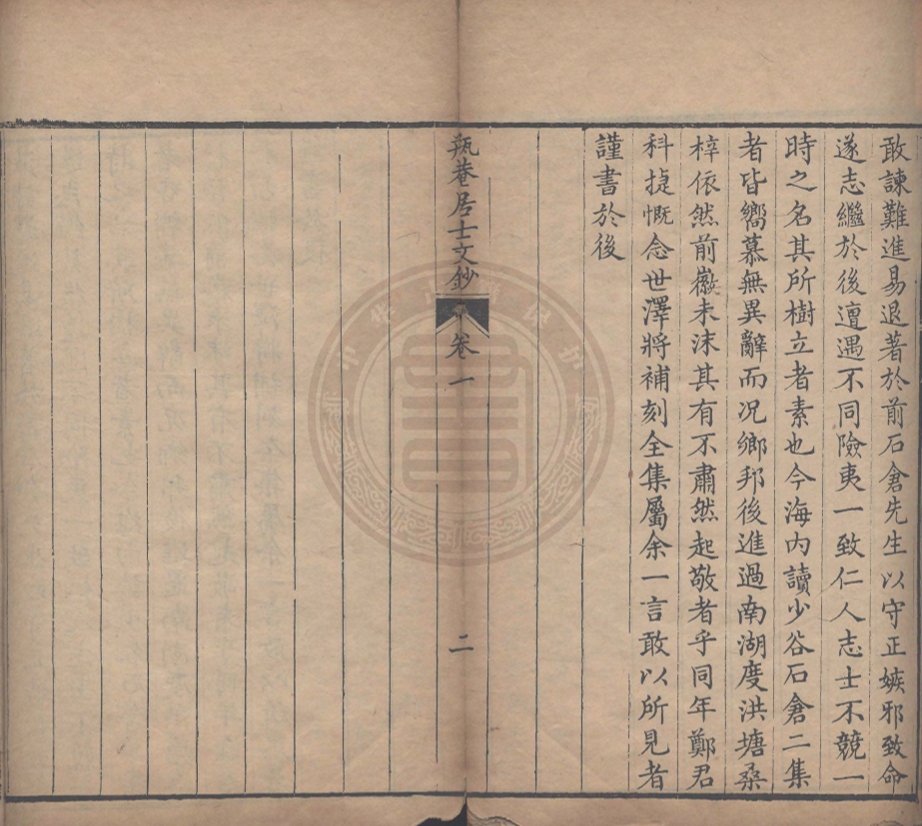 敢諫難進易退著於前石倉先生以守正嫉邪致命
遂志繼於後遭遇不同險夷一致仁人志士不競一
時之名其所樹立者素也今海內讀少谷石倉二集
者皆嚮慕無異辭而况鄉邦後進過南湖度洪塘桑
梓依然前徽未沫其有不肅然起敬者乎同年鄭君
科捷慨念世澤將補刻全集屬余一言敢以所見者
謹書於後
瓶菴居士文鈔
卷一
二